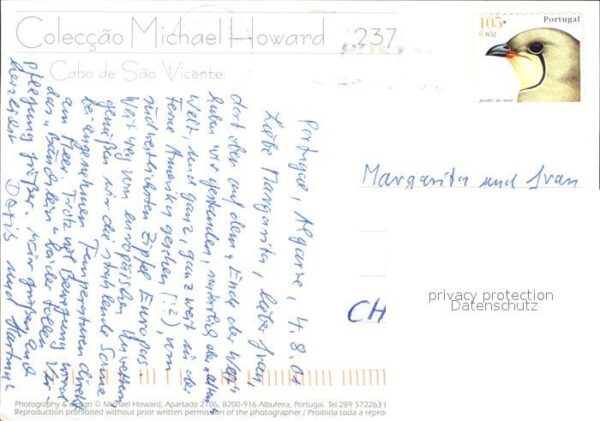 Colecção Michael Howard 237
Cabo de São Vicente
105$
€ 0.52
Portugal
perdiz do mar
Portugal, Algarve, 4.8.01
Liebe Margarita, lieber Ivan,
dort oben auf dem "Ende der Welt"
haben wir gestanden, natürlich der "alten"
Welt, und ganz, ganz weit in der
Ferne Amerika gesehen (!?), vom
südwestlichsten Zipfel Europas.
Weit weg vom europäischen Unwetter,
genießen wir die strahlende Sonne
bei angenehmen Temperaturen direkt
am Meer. Trotz viel Bewegung wird
das "Bäuchlein" bei der tollen Ver-
pflegung größer. Wir grüßen Euch
herzlichst Doris und Hartmut
Margarita und Ivan
CH
privacy protection
Datenschutz
Photography & design © Michael Howard, Apartado 2106, 8200-916 Albufeira, Portugal. Tel 289 572263
Reproduction prohibited without prior written permission of the photographer / Proibida toda a repro